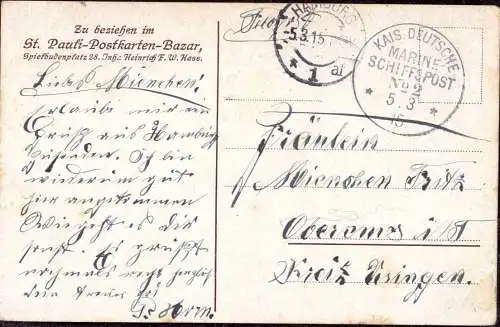 Zu beziehen im
St. Pauli-Postkarten-Bazar,
Spielbudenplatz 28. Inh.: Heinrich F. W. Hase.
Liebes Mienchen!
Erlaube mir an
Gruß aus Hamburg
Ich bin
wiederum gut
hier angekommen
Wie geht es dir
sonst. Es grüßt
nochmals recht herzlich
dein
HAMBURG
5.3.15
* 1 a
KAIS. DEUTSCHE
MARINE-
SCHIFFSPOST
No 2
* 5. 3 *
15
Fräulein
Mienchen Fritz
Oberems i/T
Kreis Usingen.